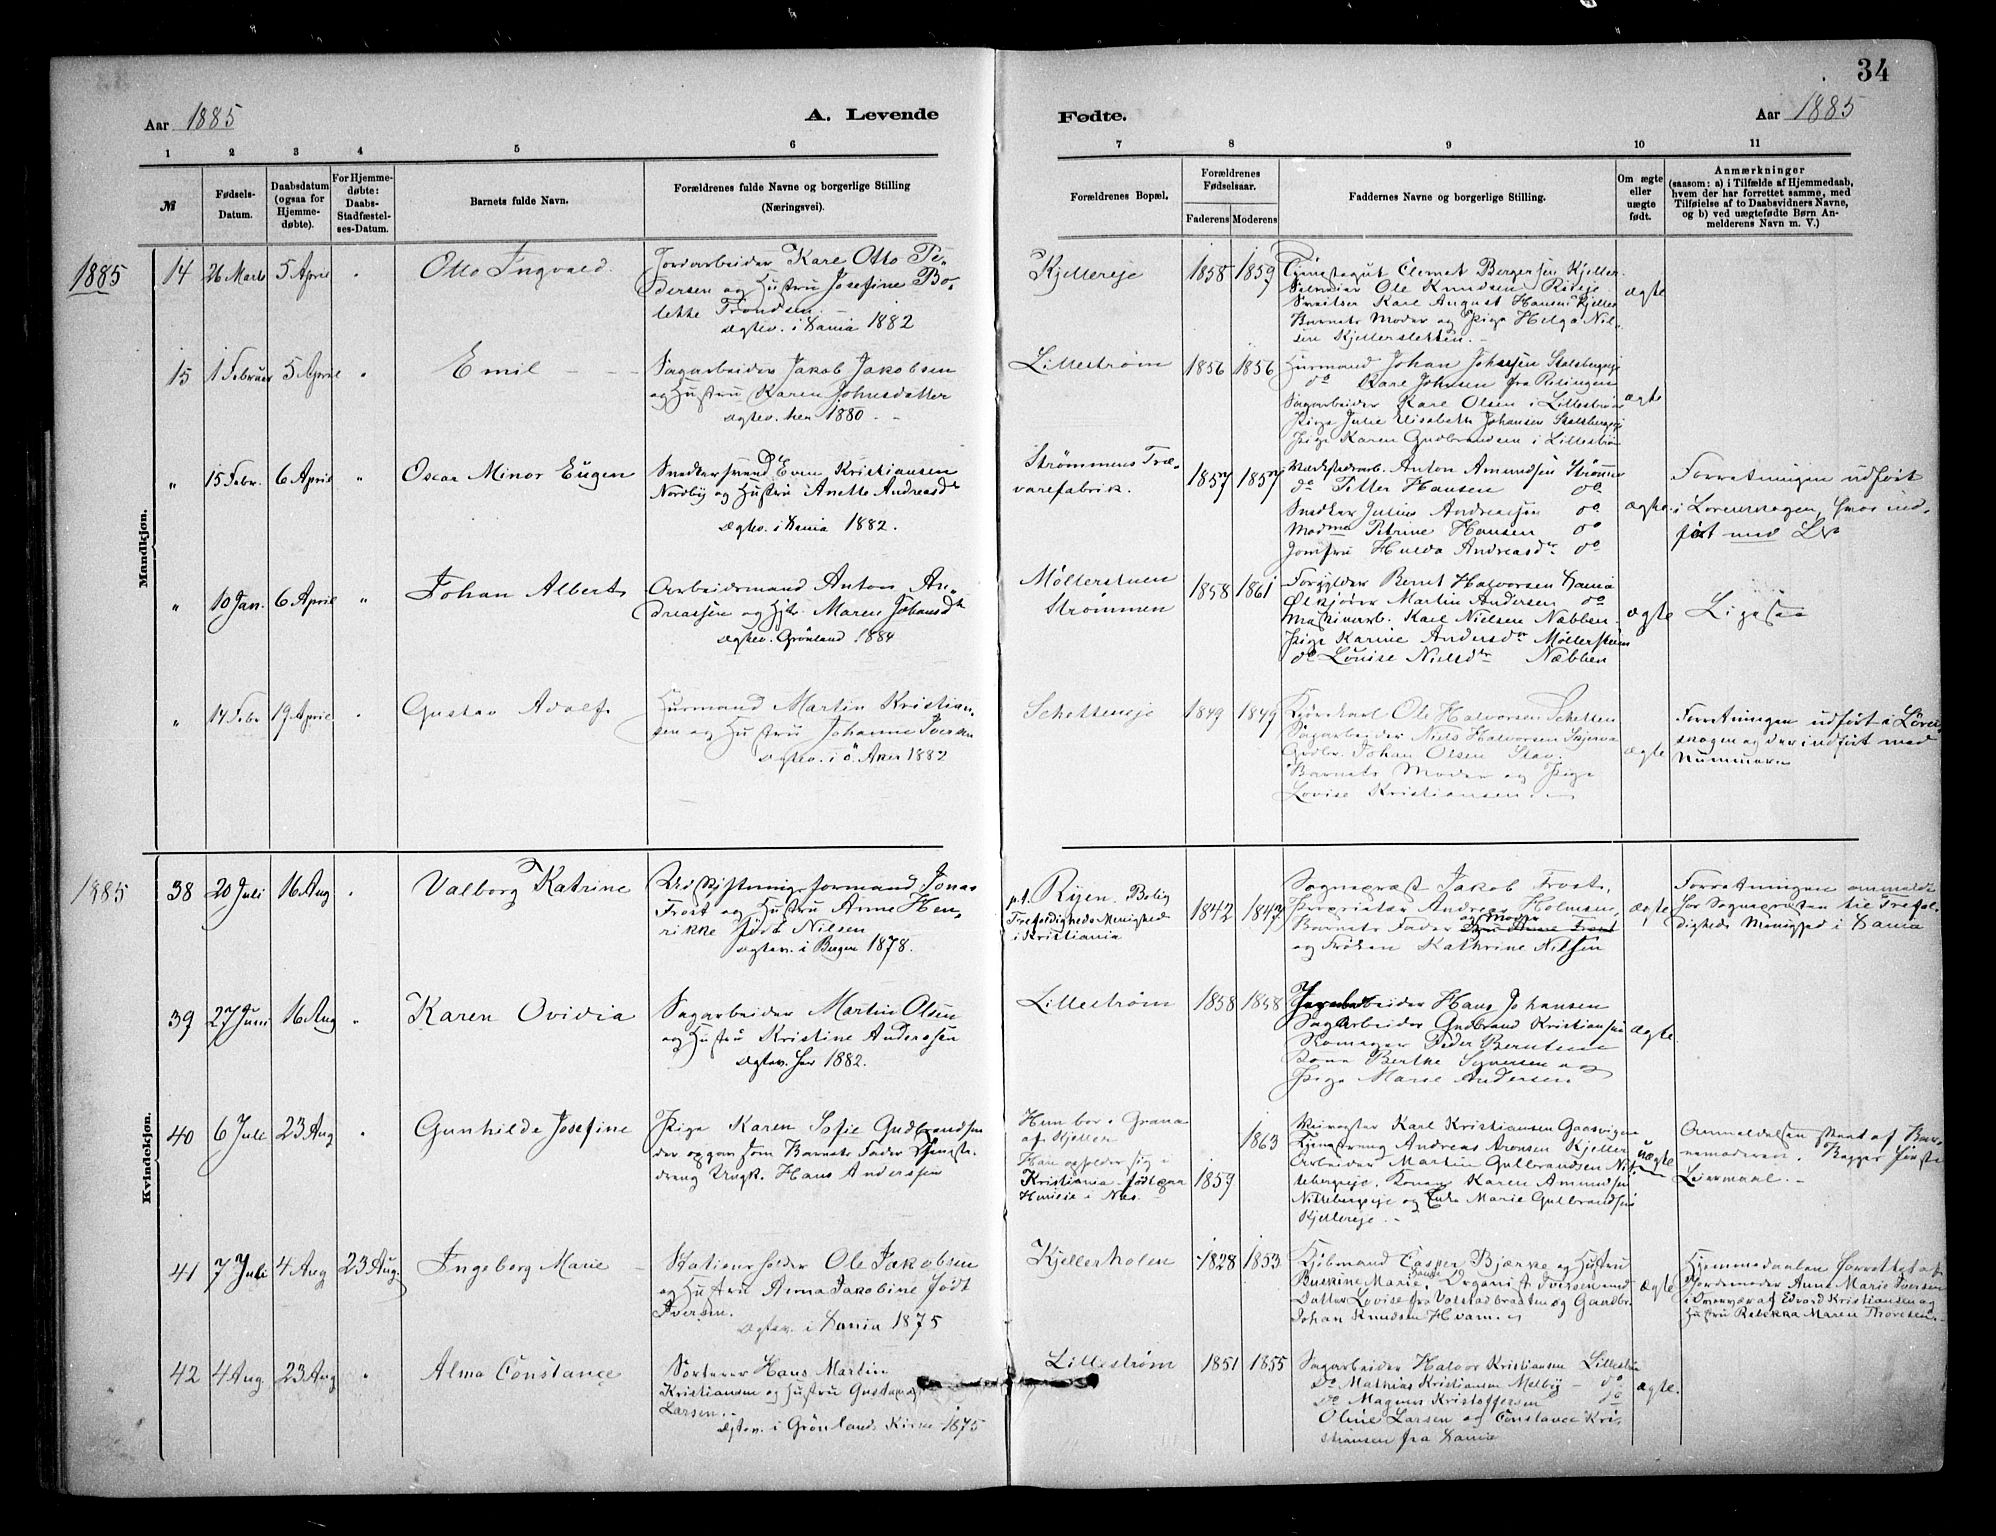 34
Aar 1885
A. Levende
Fødte.
Aar 1885
1 2 3 4 5 6 7 8 9 10 11
№
Fødsels-
Datum.
Daabsdatum
(ogsaa for
Hjemme-
døbte).
For Hjemme-
døbte:
Daabs-
Stadfæstel-
ses-Datum.
Barnets fulde Navn.
Forældrenes fulde Navne og borgerlige Stilling
(Næringsvei).
Forældrenes Bopæl.
Forældrenes
Fødselsaar.
Faderens
Moderens
Faddernes Navne og borgerlige Stilling.
Om ægte
eller
uægte
født.
Anmærkninger
(saasom: a) i Tilfælde af Hjemmedaab,
hvem der har forrettet samme, med
Tilføielse af to Daabsvidners Navne,
og b) ved uægtefødte Børn An-
melderens Navn m. V.)
Mandkjøn.
1885
14
26 Marts
5 April
"
Otto Ingvald
Jordarbeider Karl Otto Pe-
dersen og Hustru Josefine Bo-
lette Trondsen
Ægtev. i Xania 1882
Kjellereje
1858
1859
Tjenstegut Clemet Bergersen Kjeller
Ole Knudsen Riseje
Sveitser Karl August Hansen Kjeller
Barnets Moder og Pige Helga Nil-
sen Kjellersletten.
ægte
15
1 Februar
5 April
"
Emil
Sagarbeider Jakob Jakobsen
og Hustru Karen Johnsdatter
Ægtev. her 1880
Lillestrøm
1856
1856
Husmand Johan Johnsen Stalsbergeje
do Karl Johnsen fra Rælingen
Sagarbeider Karl Olsen i Lillestrøm
Pige Julie Elisabeth Johansen Stalsbergeje
Pige Karen Gudbrandsen i Lillestrøm
ægte
"
15 Febr.
6 April
"
Oscar Minor Eugen
Snedkersvend Even Kristiansen
Nordby og Hustru Anette Andreasdr
Ægtev. i Xania 1882.
Strømmens Træ-
varefabrik.
1857
1857
Værkstedarb. Anton Amundsen Strømmen
do Petter Hansen do
Snedker Julius Andreasen do
Madme Petrine Hansen do
Jomfru Hulda Andreasdr do
ægte.
Forretningen udført
i Lørenskogen, hvor ind-
ført med No
"
10 Jan.
6 April
"
Johan Albert
Arbeidsmand Anton An-
dreassen og Hst. Maren Johansdr
Ægtev. Grønland 1884
Møllerstuen
Strømmen
1858
1861
Forgylder Bernt Halvorsen Xania
Ølkjører Martin Andersen do
Maskinarb. Karl Nielsen Næbben
Pige Karine Andersdr Møllerstuen
do Louise Nielsdr Næbben
ægte
Ligesaa
"
14 Febr
19 April
"
Gustav Adolf
Husmand Martin Kristian-
sen og Hustru Johanne Iversen
Ægtev. i Ø. Aker 1882
Schetteneje
1849
1849
Ole Halvorsen Schetten
Sagarbeider Niels Halvorsen Skjerva
Gdbr. Johan Olsen Stav
Barnets Moder og Pige
Lovise Kristiansen
ægte
Forretningen udført i Løren-
skogen og der indført med
Nummer
Kvindekjøn.
1885
38
20 Juli
16 Aug
"
Valborg Katrine
Udskiftningsformand Jonas
Frost og Hustru Anne Hen-
rikke født Nilsen
Ægtev. i Bergen 1878.
p.t. Ryen. Bolig
Trefoldigheds Menighed
i Kristiania
1842
1847
Sogneprest Jakob Frost,
Proprietær Andreas Holmsen,
Barnets Fader og Moder
og Frøken Kathrine Nilsen
ægte
Forretningen anmeldt
for Sognepresten til Trefol-
digheds Menighed i Xania
39
27 Juni
16 Aug
"
Karen Ovidia
Sagarbeider Martin Olsen
og Hustru Kristine Anderssen
Ægtev. her 1882.
Lillestrøm
1858
1858
Hans Johansen
Sagarbeider Gudbrand Kristiansen
Skomager Peder Berntsen
Kone Berthe Syversen og
Pige Marie Andersen
ægte.
40
6 Juli
23 Aug
"
Gunhilde Josefine
Pige Karen Sofie Gudbrandsen
der opgav som Barnets Fader Tjenste-
dreng Ungk. Hans Anderssen
Hun bor i Grana
af Kjeller
Han opholder sig i
Kristiania
1859
1863
Karl Kristiansen Gaasvigen
Tjenstedreng Andreas Aronsen Kjeller
Arbeider Martin Gulbrandsen Nit-
tebergeje, Konen Karen Amundsen
Nittebergeje og Enke Marie Gulbrandsen
Kjellereje
uægte
Anmeldelsen skeet af Bar-
nemoderen. Begges første
Leiermaal.
41
7 Juli
4 Aug
23 Aug.
Ingeborg Marie
Stationsholder Ole Jakobsen
og Hustru Anna Jakobine født
Iversen.
Ægtev. i Xania 1875
Kjellerholen
1828
1853
Kjøbmand Casper Bjerke og Hustru
Marie, Organist Iverssen med
Datter Lovise fra Vatstadbraaten og Gaardbr.
Johan Knudsen Hvam
ægte
Hjemmedaaben forrettet af
Jordemoder Anne Marie Iversen
i Overvær af Edvard Kristiansen og
Hustru Rebekka Maren Thoresen.
42
4 Aug
23 Aug
"
Alma Constance
Sorterer Hans Martin
Kristiansen og Hustru Gustava
Larsen.
Ægtev. i Grønlands Kirke 1875
Lillestrøm
1851
1855
Sagarbeider Halvor Kristiansen Lillestrøm
Do Mathias Kristiansen Melby do
Do Magnus Kristoffersen do
Oline Larsen og Constance Kri-
stiansen fra Xania
ægte.